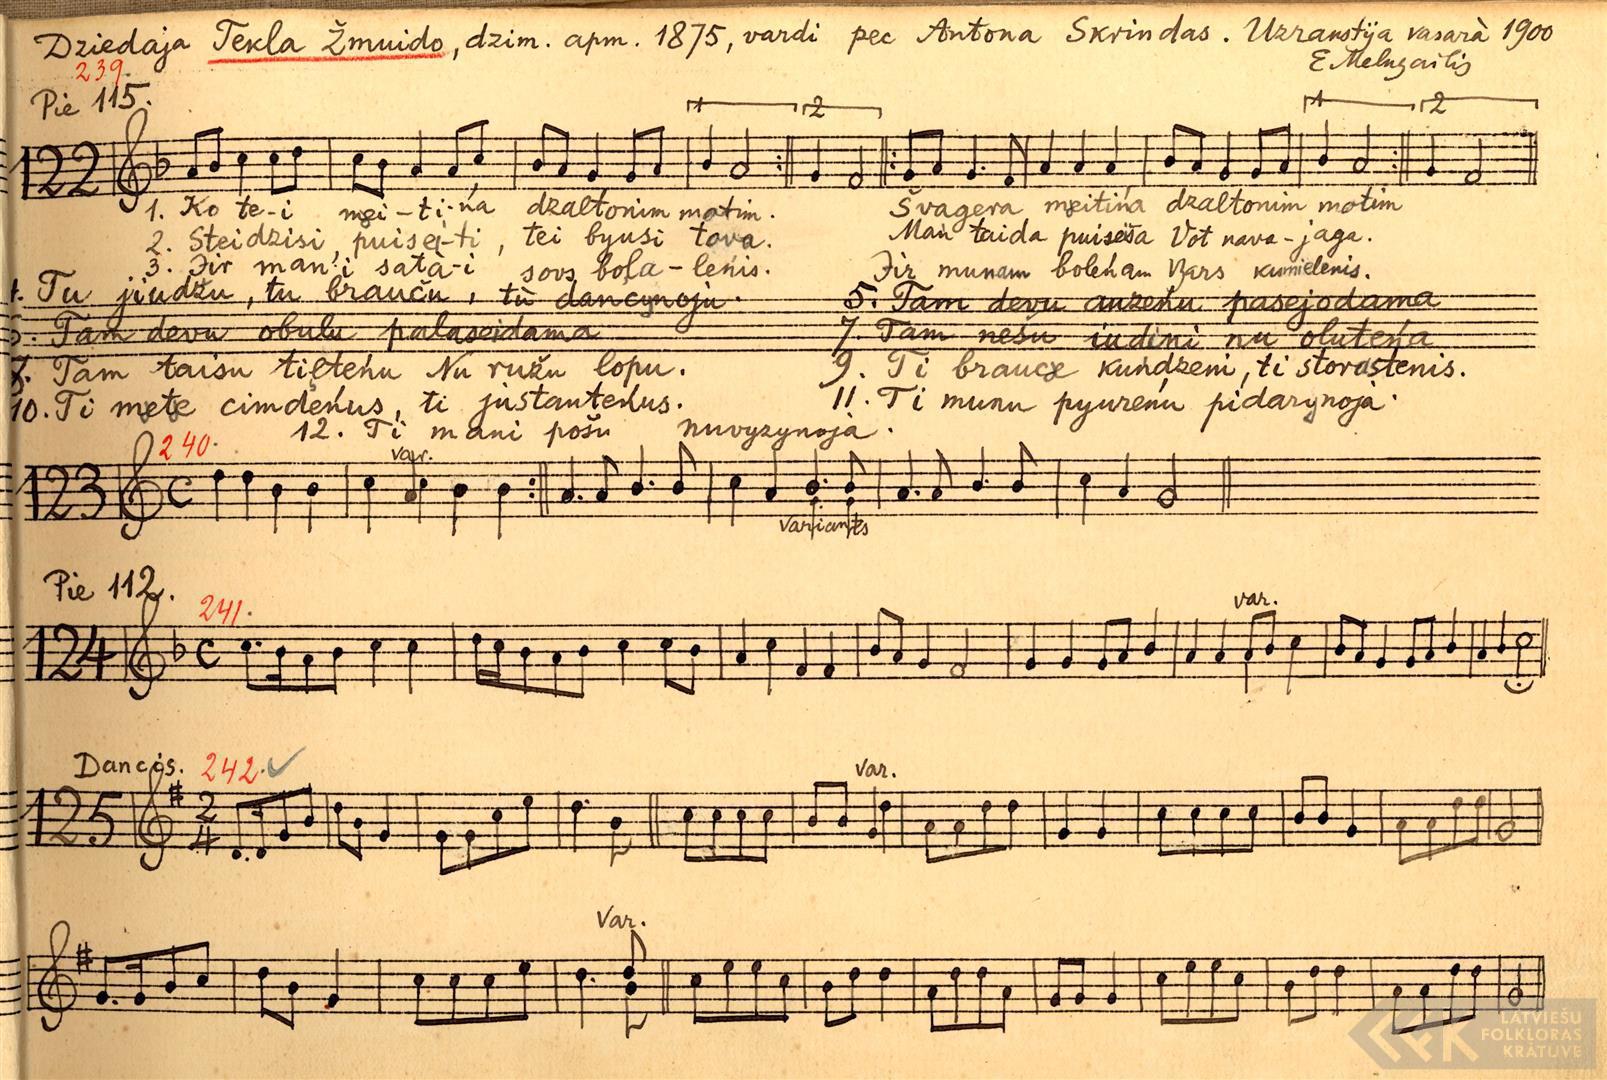 Dziedaja Tekla Žmuido, dzim. apm. 1875, vardi pec Antona Skrindas. Uzrakstīja vasarà 1900
E Melngailis
239.
Pie 115.
1 2 1 2
122
1. Ko te-i męi-ti-ńa dzaltonim motim. Švagera męitińa dzaltonim motim
2. Steidzisi, puisęi-ti, tei byusi tova. Man taida puisęša Vot nava-jaga.
3. Jir man'i satà-i sovs bola-lenis. Jir munam boleńam Bęrs kumielenis.
4. Tu jiudžu, tu braucu, tù dancynoju. 5. Tam devu auzeńu pasejodama
6. Tam devu obulu palaseidama 7. Tam nešu iudini nu oluteńa
8. Tam taisu tilteńu Nu ružu lopu. 9. Ti braucę kuńdzeni, ti storastenis.
10. Ti mętę cimdeńus, ti justauteńus. 11. Ti munu pyureńu pidarynoja.
12. Ti mani pošu nuvyzynoja.
240.
var.
123
variants
Pie 112.
241.
var.
124
Dancis. 242. ✓
var.
125 2/4
Var.
LATVIEŠU
FOLKLORAS
KRĀTUVE